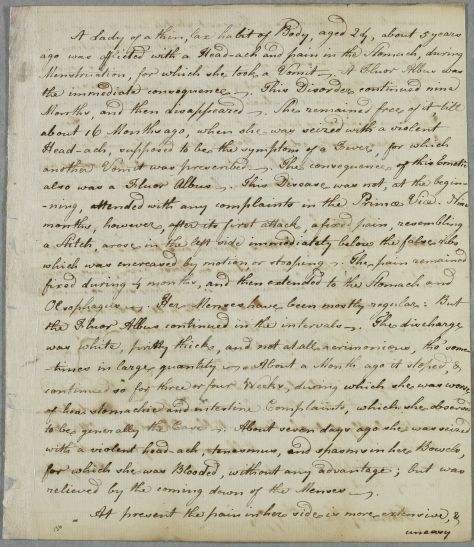 A Lady of a thin, lax habit of Body, aged 24, about 5 years
ago was afflicted with a Head-ach and pain in the Stomach, during
Menstruation, for which she took a Vomit. A Fluor Albus was
the immediate consequence. This Disorder continued nine
Months, and then disappeared. She remained free of it till
about 16 Months ago, when she was seized with a violent
Head-ach, supposed to be the symptom of a Fever, for which
another Vomit was prescribed. The consequence of this Emetic
also was a Fluor Albus. This Disease was not, at the begin-
-ning, attended with any complaints in the Primæ Viæ.
months, however, after its first attack, a fixed pain, resembling
a Stitch, arose in the left side immediately below the false ribs
which was encreased by motion or stooping. The pain remained
fixed during 4 months, and then extended to the Stomach and
Oesophagus. Her Menses have been mostly regular: But
the Fluor Albus continued in the intervals. The discharge
was white, pretty thick, and not at all acrimonious, tho' some-
-times in large quantity. About a Month ago it stoped, &
continued so for three or four Weeks, during which she was worse
of her stomachic and intestine Complaints, which she observed
to be generally the Case. About seven days ago she was seized
with a violent head-ach, tenesmus, and spasms in her Bowels,
for which she was Blooded, without any advantage; but was
relieved by the coming down of the Menses.
At present the pain in her side is more extensive &
uneasy